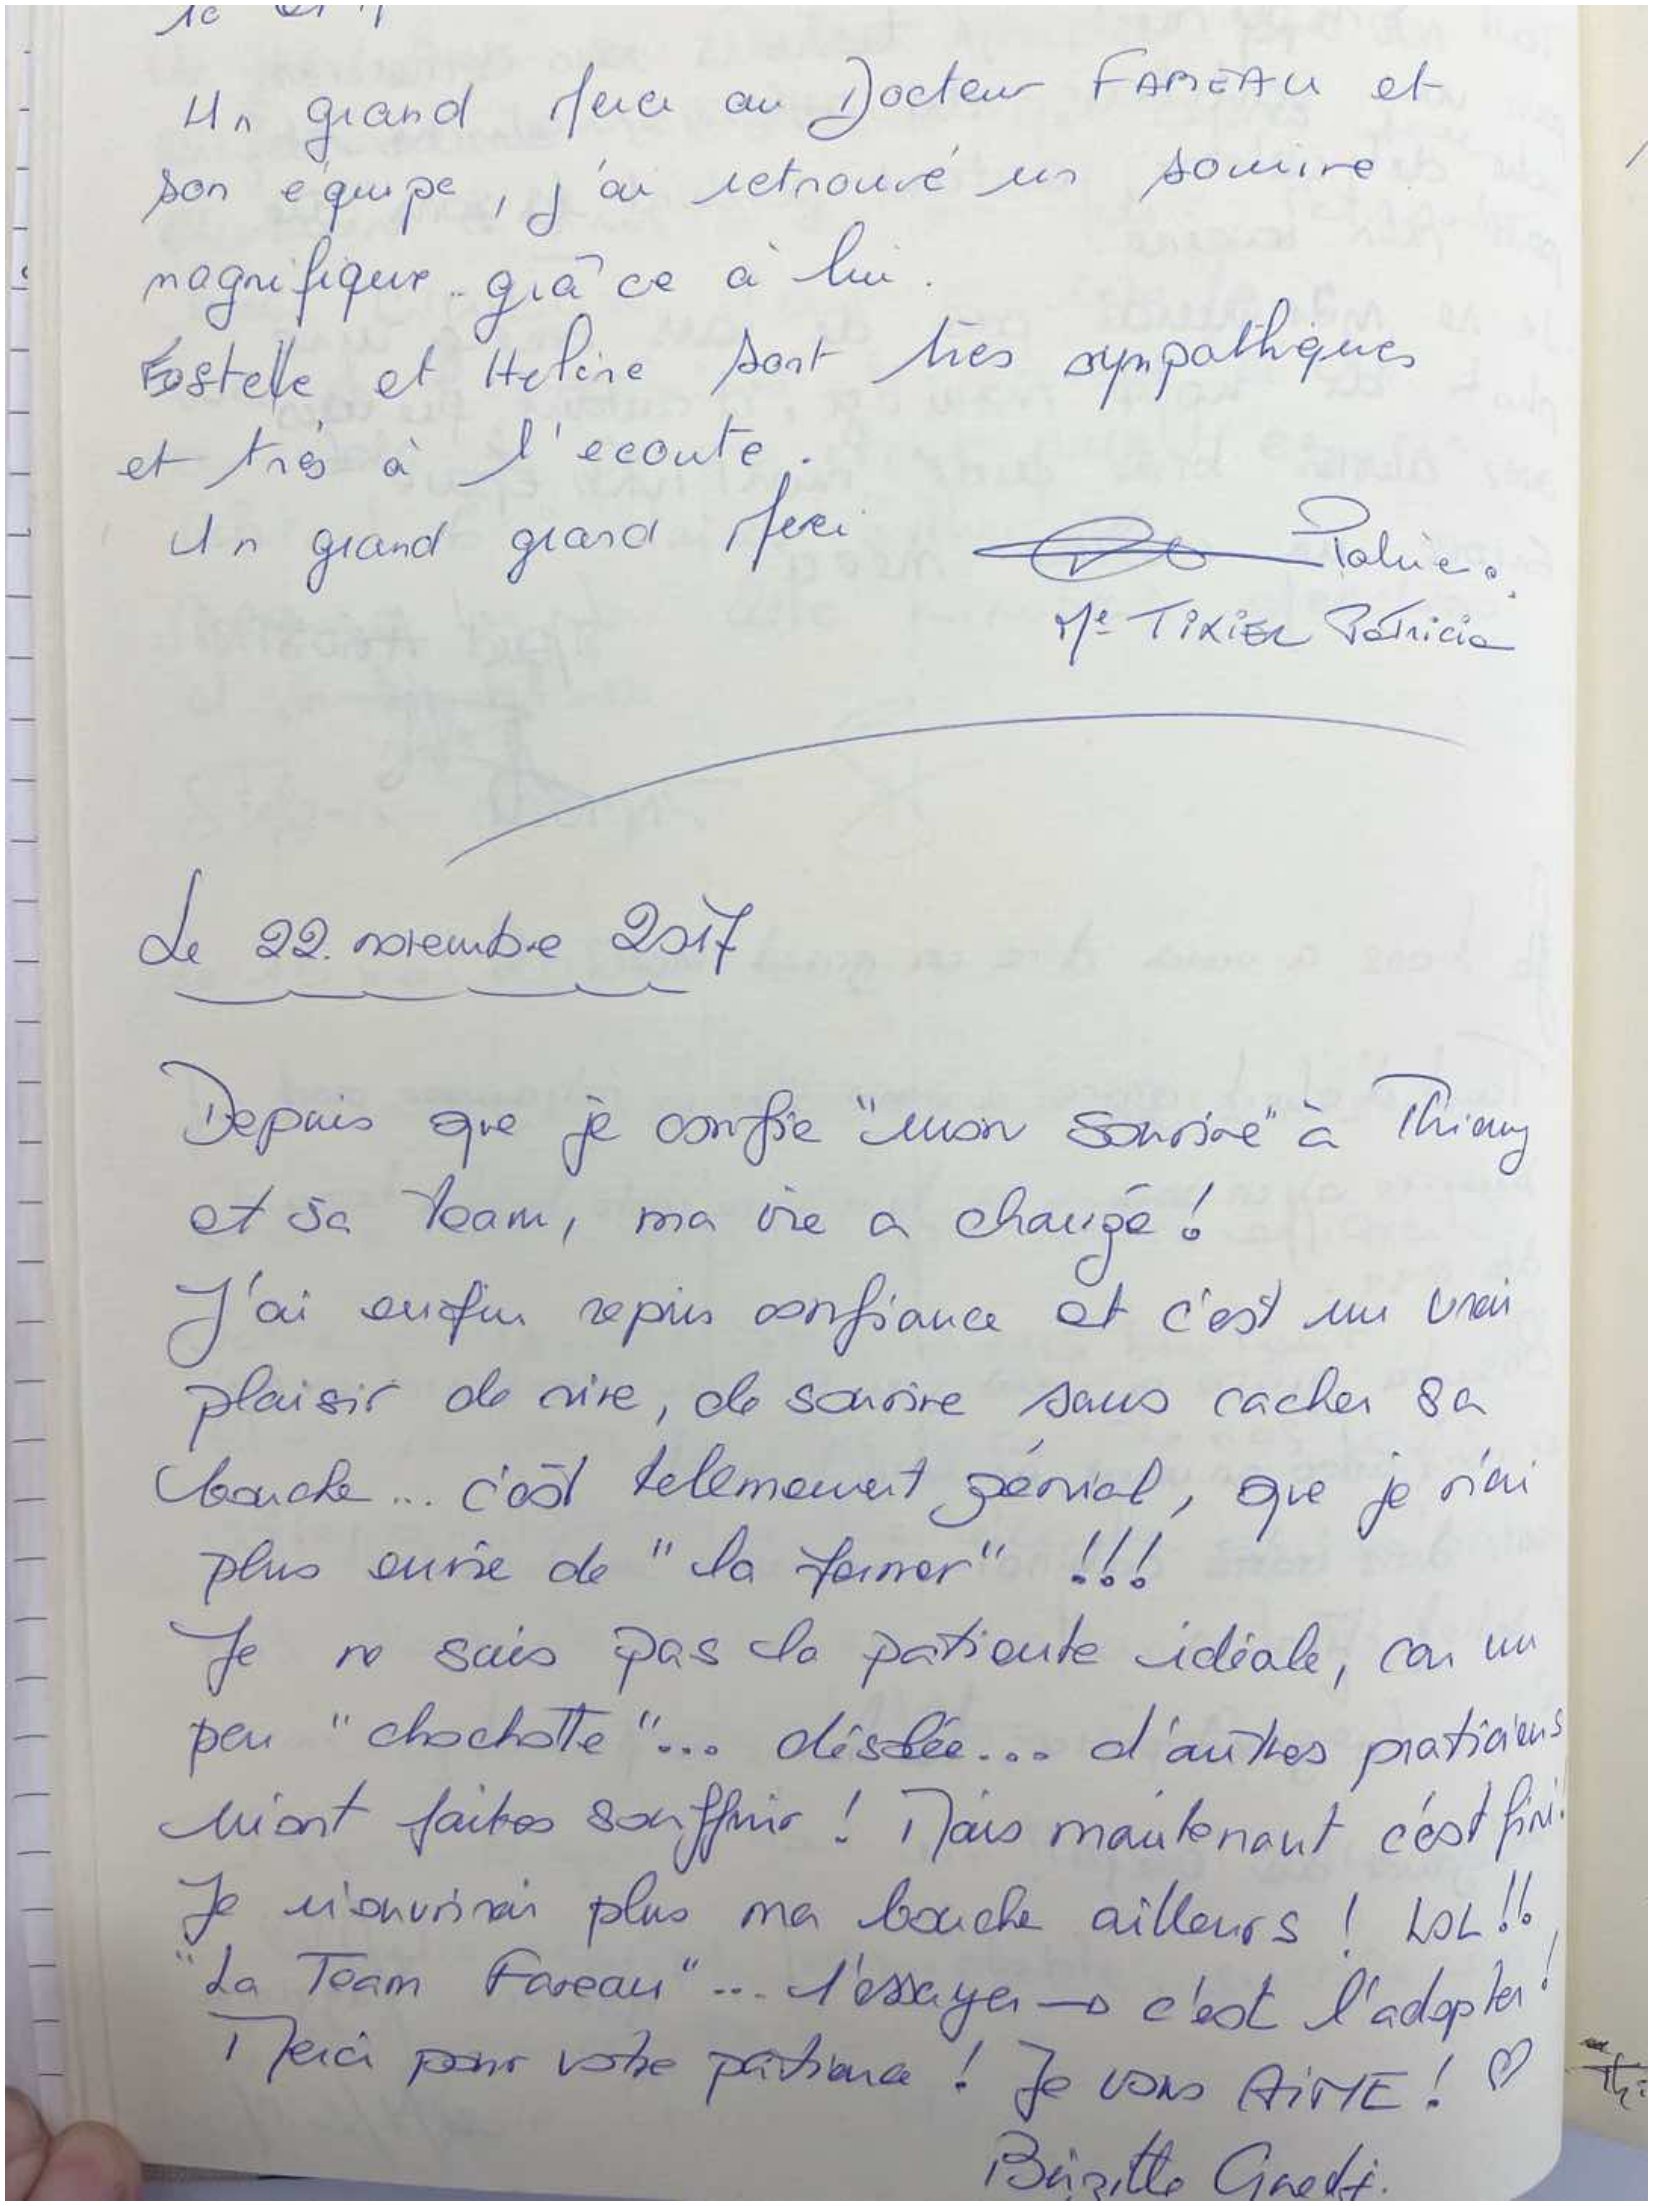 Un grand Merci au Docteur FAREAU et
son équipe, j'ai retrouvé un sourire
magnifique grâce à lui.
Estelle et Helène sont très sympathiques
et très à l'ecoute.
Un grand grand Merci
Me TIXIER Patricia
Le 22 novembre 2017
Depuis que je confie "mon sourire" à Thierry
et sa team, ma vie a changé !
J'ai enfin repris confiance et c'est un vrai
plaisir de rire, de sourire sans cacher sa
bouche... c'est tellement génial, que je n'ai
plus envie de "la fermer" !!!
Je ne suis pas la patiente idéale, car un
peu "chochotte"... désolée... d'autres praticiens
m'ont faites souffrir ! Mais maintenant c'est fini.
Je n'ouvrirai plus ma bouche ailleurs ! LOL !!
"La Team Fareau"... l'essayer → c'est l'adopter !
Merci pour votre patience ! Je vous AIME ! ♡
Brigitte